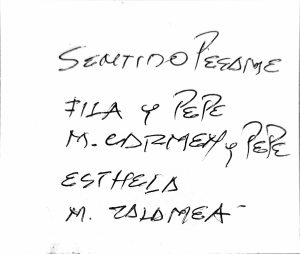 SENTIDO PESAME
FILA Y PEPE
M. CARMEN y PEPE
ESTHELA
M. ZALAMEA